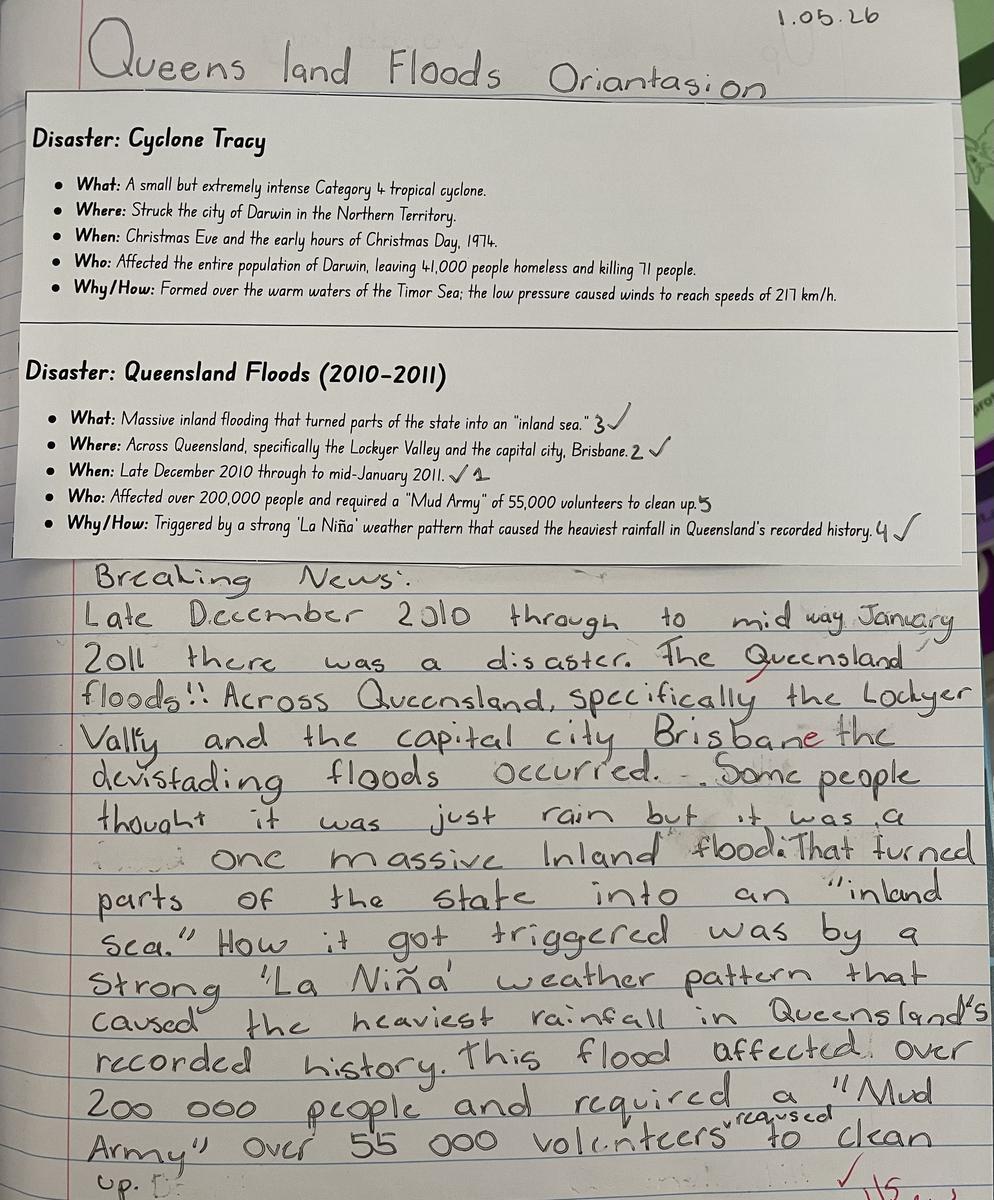 1.05.26
Queens land Floods Oriantasion
Disaster: Cyclone Tracy
• What: A small but extremely intense Category 4 tropical cyclone.
• Where: Struck the city of Darwin in the Northern Territory.
• When: Christmas Eve and the early hours of Christmas Day, 1974.
• Who: Affected the entire population of Darwin, leaving 41,000 people homeless and killing 71 people.
• Why/How: Formed over the warm waters of the Timor Sea; the low pressure caused winds to reach speeds of 217 km/h.
Disaster: Queensland Floods (2010-2011)
• What: Massive inland flooding that turned parts of the state into an "inland sea." 3 ✓
• Where: Across Queensland, specifically the Lockyer Valley and the capital city, Brisbane. 2 ✓
• When: Late December 2010 through to mid-January 2011. ✓ 1
• Who: Affected over 200,000 people and required a "Mud Army" of 55,000 volunteers to clean up. 5
• Why/How: Triggered by a strong 'La Niña' weather pattern that caused the heaviest rainfall in Queensland's recorded history. 4 ✓
Breaking News:
Late December 2010 through to mid way January
2011 there was a disaster. The Queensland
floods!! Across Queensland, specifically the Lockyer
Vally and the capital city Brisbane the
devistading floods occurred. Some people
thought it was just rain but it was a
one massive Inland flood. That turned
parts of the state into an "inland
sea." How it got triggered was by a
strong 'La Niña' weather pattern that
caused the heaviest rainfall in Queensland's
recorded history. This flood affected over
200 000 people and required a "Mud
Army" over 55 000 volenteers to clean
up.